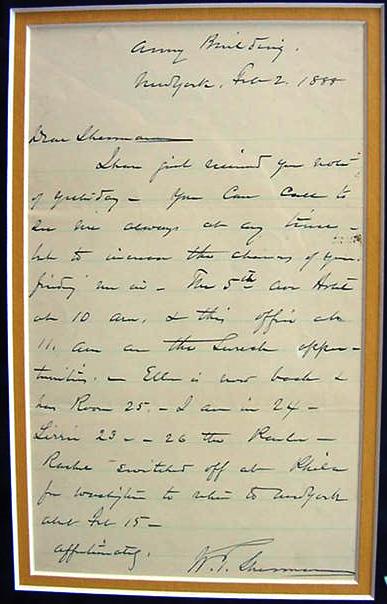 Army Building,
New York, Feb 2. 1888
Dear Sherman
I have just received your note
of yesterday - You can call to
see me always at any time -
but to increase the chances of your
finding me in - The 5th Ave Hotel
at 10 am. & this office at
11. am are the surest oppor-
tunities. - Ellen is now back &
has Room 25. - I am in 24 -
Lizzie 23 - - 26 the Parlor -
Rachel switched off at Phila
for Washington to return to New York
abt Feb 15 -
affectionately,
W. T. Sherman